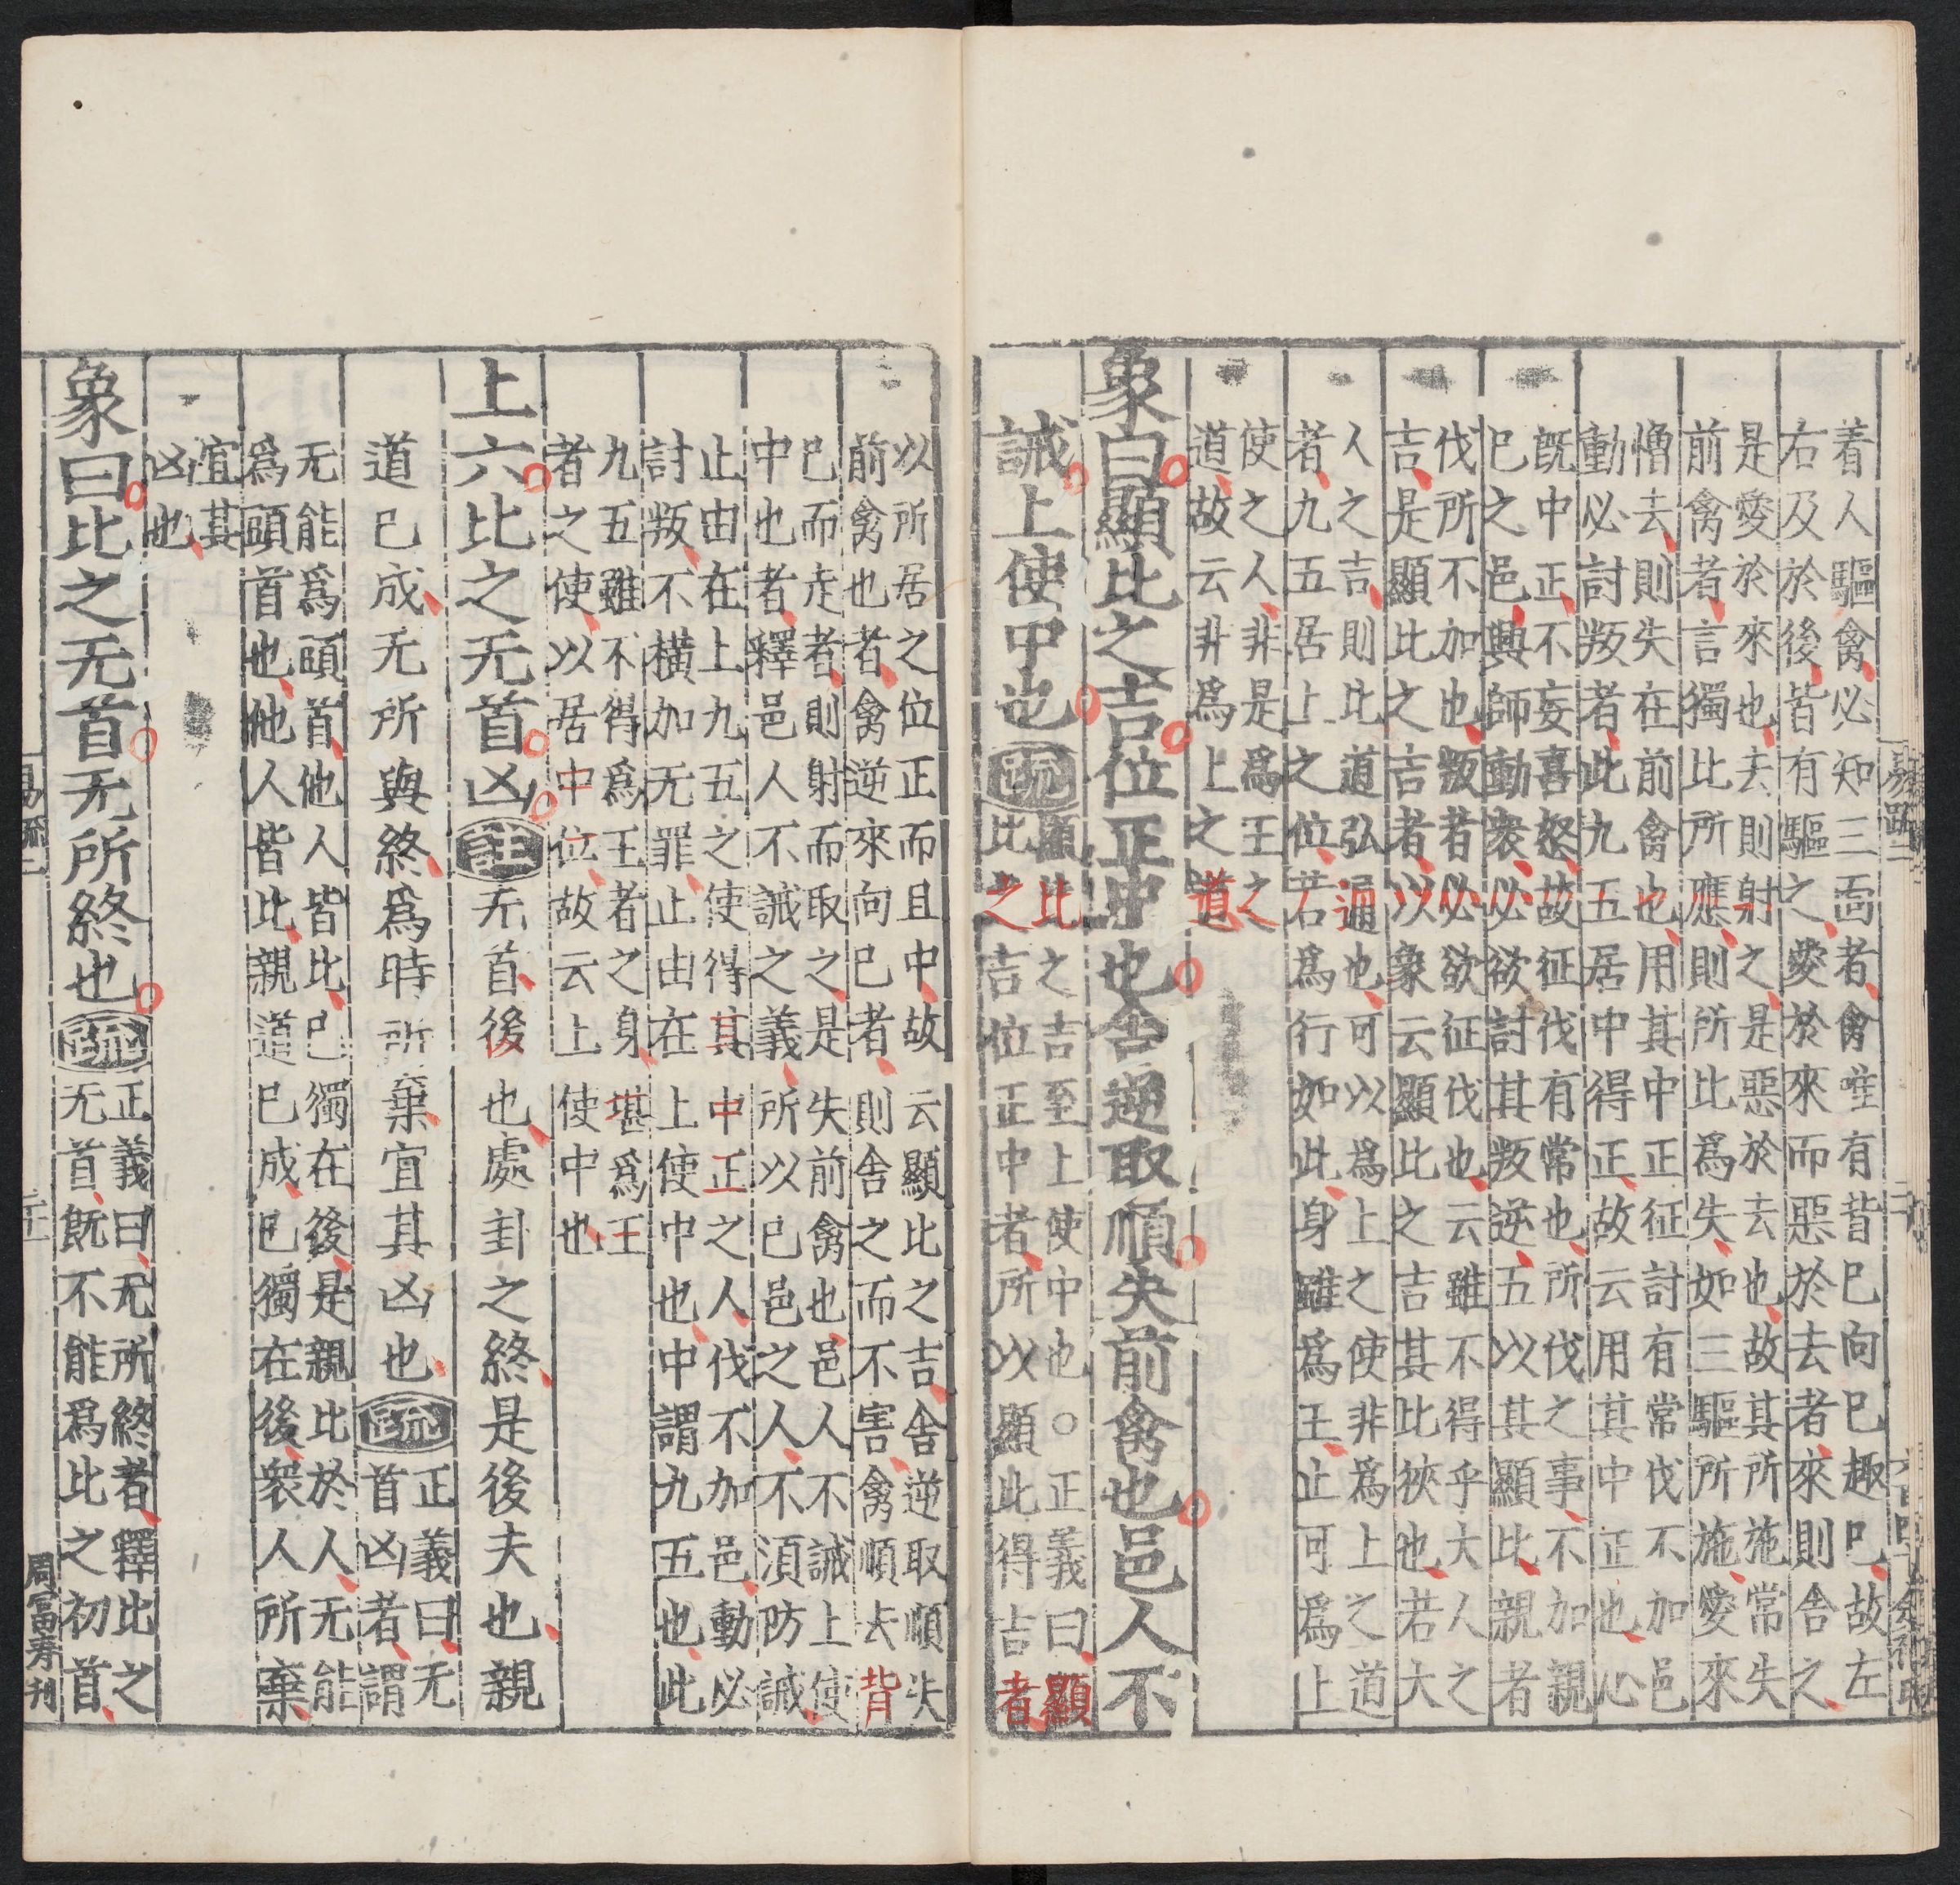 着人驅禽必知三面者禽唯有背已向已趣已故左
右及於後皆有驅之愛於來而惡於去者來則舍之
是愛於來也去則射之是惡於去也故其所施常失
前禽者言獨比所應則所比爲失如三驅所施愛來
憎去則失在前禽也用其中正征討有常伐不加邑
動必討叛者此九五居中得正故云用其中正也心
既中正不妄喜怒故征伐有常也所伐之事不加親
已之邑興師動衆必欲討其叛逆五以其顯比親者
伐所不加也叛者必欲征伐也云雖不得乎大人之
吉是顯比之吉者以象云顯比之吉其比狹也若大
人之吉則比道弘遍也可以爲上之使非爲上之道
者九五居上之位若爲行如此身雖爲王止可爲上
使之人非是爲王之
道故云非爲上之道
象曰顯比之吉位正中也舍逆取順失前禽也邑人不
誡上使中也
疏
顯比之吉至上使中也○正義曰顯
比之吉位正中者所以顯比得吉者
以所居之位正而且中故云顯比之吉舍逆取順失
前禽也者禽逆來向已者則舍之而不害禽順去背
已而走者則射而取之是失前禽也邑人不誡上使
中也者釋邑人不誡之義所以已邑之人不須防誡
止由在上九五之使得其中正之人伐不加邑動必
討叛不橫加无罪止由在上使中也中謂九五也此
九五雖不得爲王者之身堪爲王
者之使以居中位故云上使中也
上六比之无首凶
註
无首後也處卦之終是後夫也親
道已成无所與終爲時所棄宜其凶也
疏
正義曰无
首凶者謂
无能爲頭首他人皆比已獨在後是親比於人无能
爲頭首也他人皆比親道已成已獨在後衆人所棄
宜其
凶也
象曰比之无首无所終也
疏
正義曰无所終者釋比之
无首既不能爲比之初首
周富寿刊